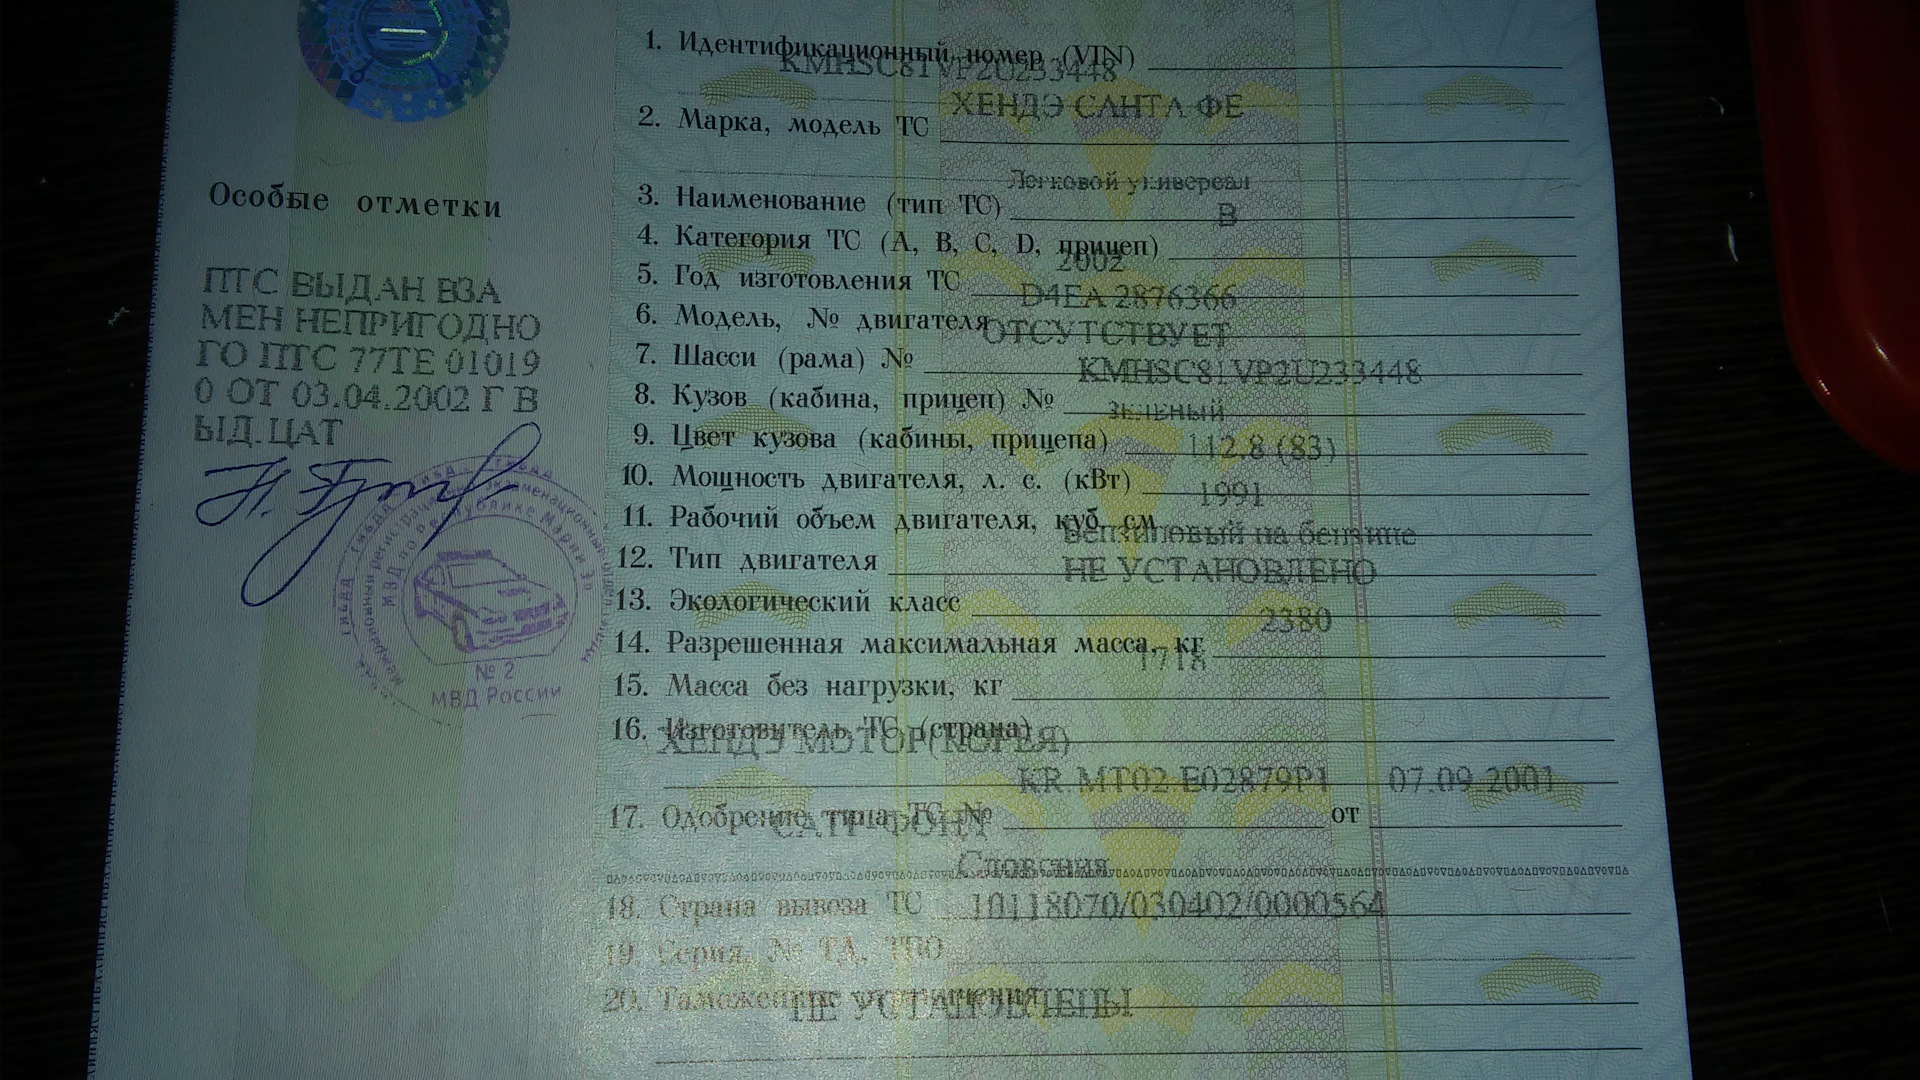 Особые отметки
ПТС ВЫДАН ВЗА
МЕН НЕПРИГОДНО
ГО ПТС 77ТЕ 01019
0 ОТ 03.04.2002 Г В
ЫД.ЦАТ
МВД по Республике Марий Эл
№ 2
МВД России
1. Идентификационный номер (VIN)
KMHSC81VP2U233448
ХЕНДЭ САНТА ФЕ
2. Марка, модель ТС
Легковой универсал
3. Наименование (тип ТС)
B
4. Категория ТС (A, B, C, D, прицеп)
2002
5. Год изготовления ТС
D4EA 2876366
6. Модель, № двигателя
ОТСУТСТВУЕТ
7. Шасси (рама) №
KMHSC81VP2U233448
8. Кузов (кабина, прицеп) №
зеленый
9. Цвет кузова (кабины, прицепа)
112.8 (83)
10. Мощность двигателя, л. с. (кВт)
1991
11. Рабочий объем двигателя, куб. см
Бензиновый на бензине
12. Тип двигателя
НЕ УСТАНОВЛЕНО
13. Экологический класс
2380
14. Разрешенная максимальная масса, кг
1718
15. Масса без нагрузки, кг
16. Изготовитель ТС (страна)
ХЕНДЭ МОТОР(КОРЕЯ)
KR.MT02.E02879P1 07.09.2001
17. Одобрение типа ТС № от
Словения
18. Страна вывоза ТС
10118070/030402/0000564
19. Серия, № ТД, ТПО
20. Таможенные ограничения
НЕ УСТАНОВЛЕНЫ